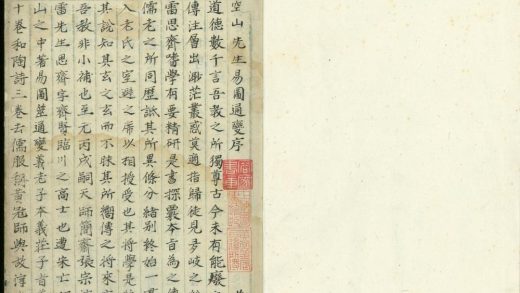 空山先生易圖通變序
道德數千言吾教之所獨尊古今未有能廢
傳注層出渺茫叢惑莫適指歸徒見多岐之
雷思齊嗜學有要精研是書探覈本旨為之
儒老之所同歷詆其所異條分緒別終始一
入老氏之室避之席以相授受也其將學是
其說如其玄之玄而不昧其所嚮傳之將來
吾教非小補也至元丙戌嗣天師簡齋張宗
雷先生思齊字齊賢臨川之高士也遭宋亡
山之中著易圖筮通變義老子本義莊子旨
十卷和陶詩三卷去儒服稱黃冠師與故淳